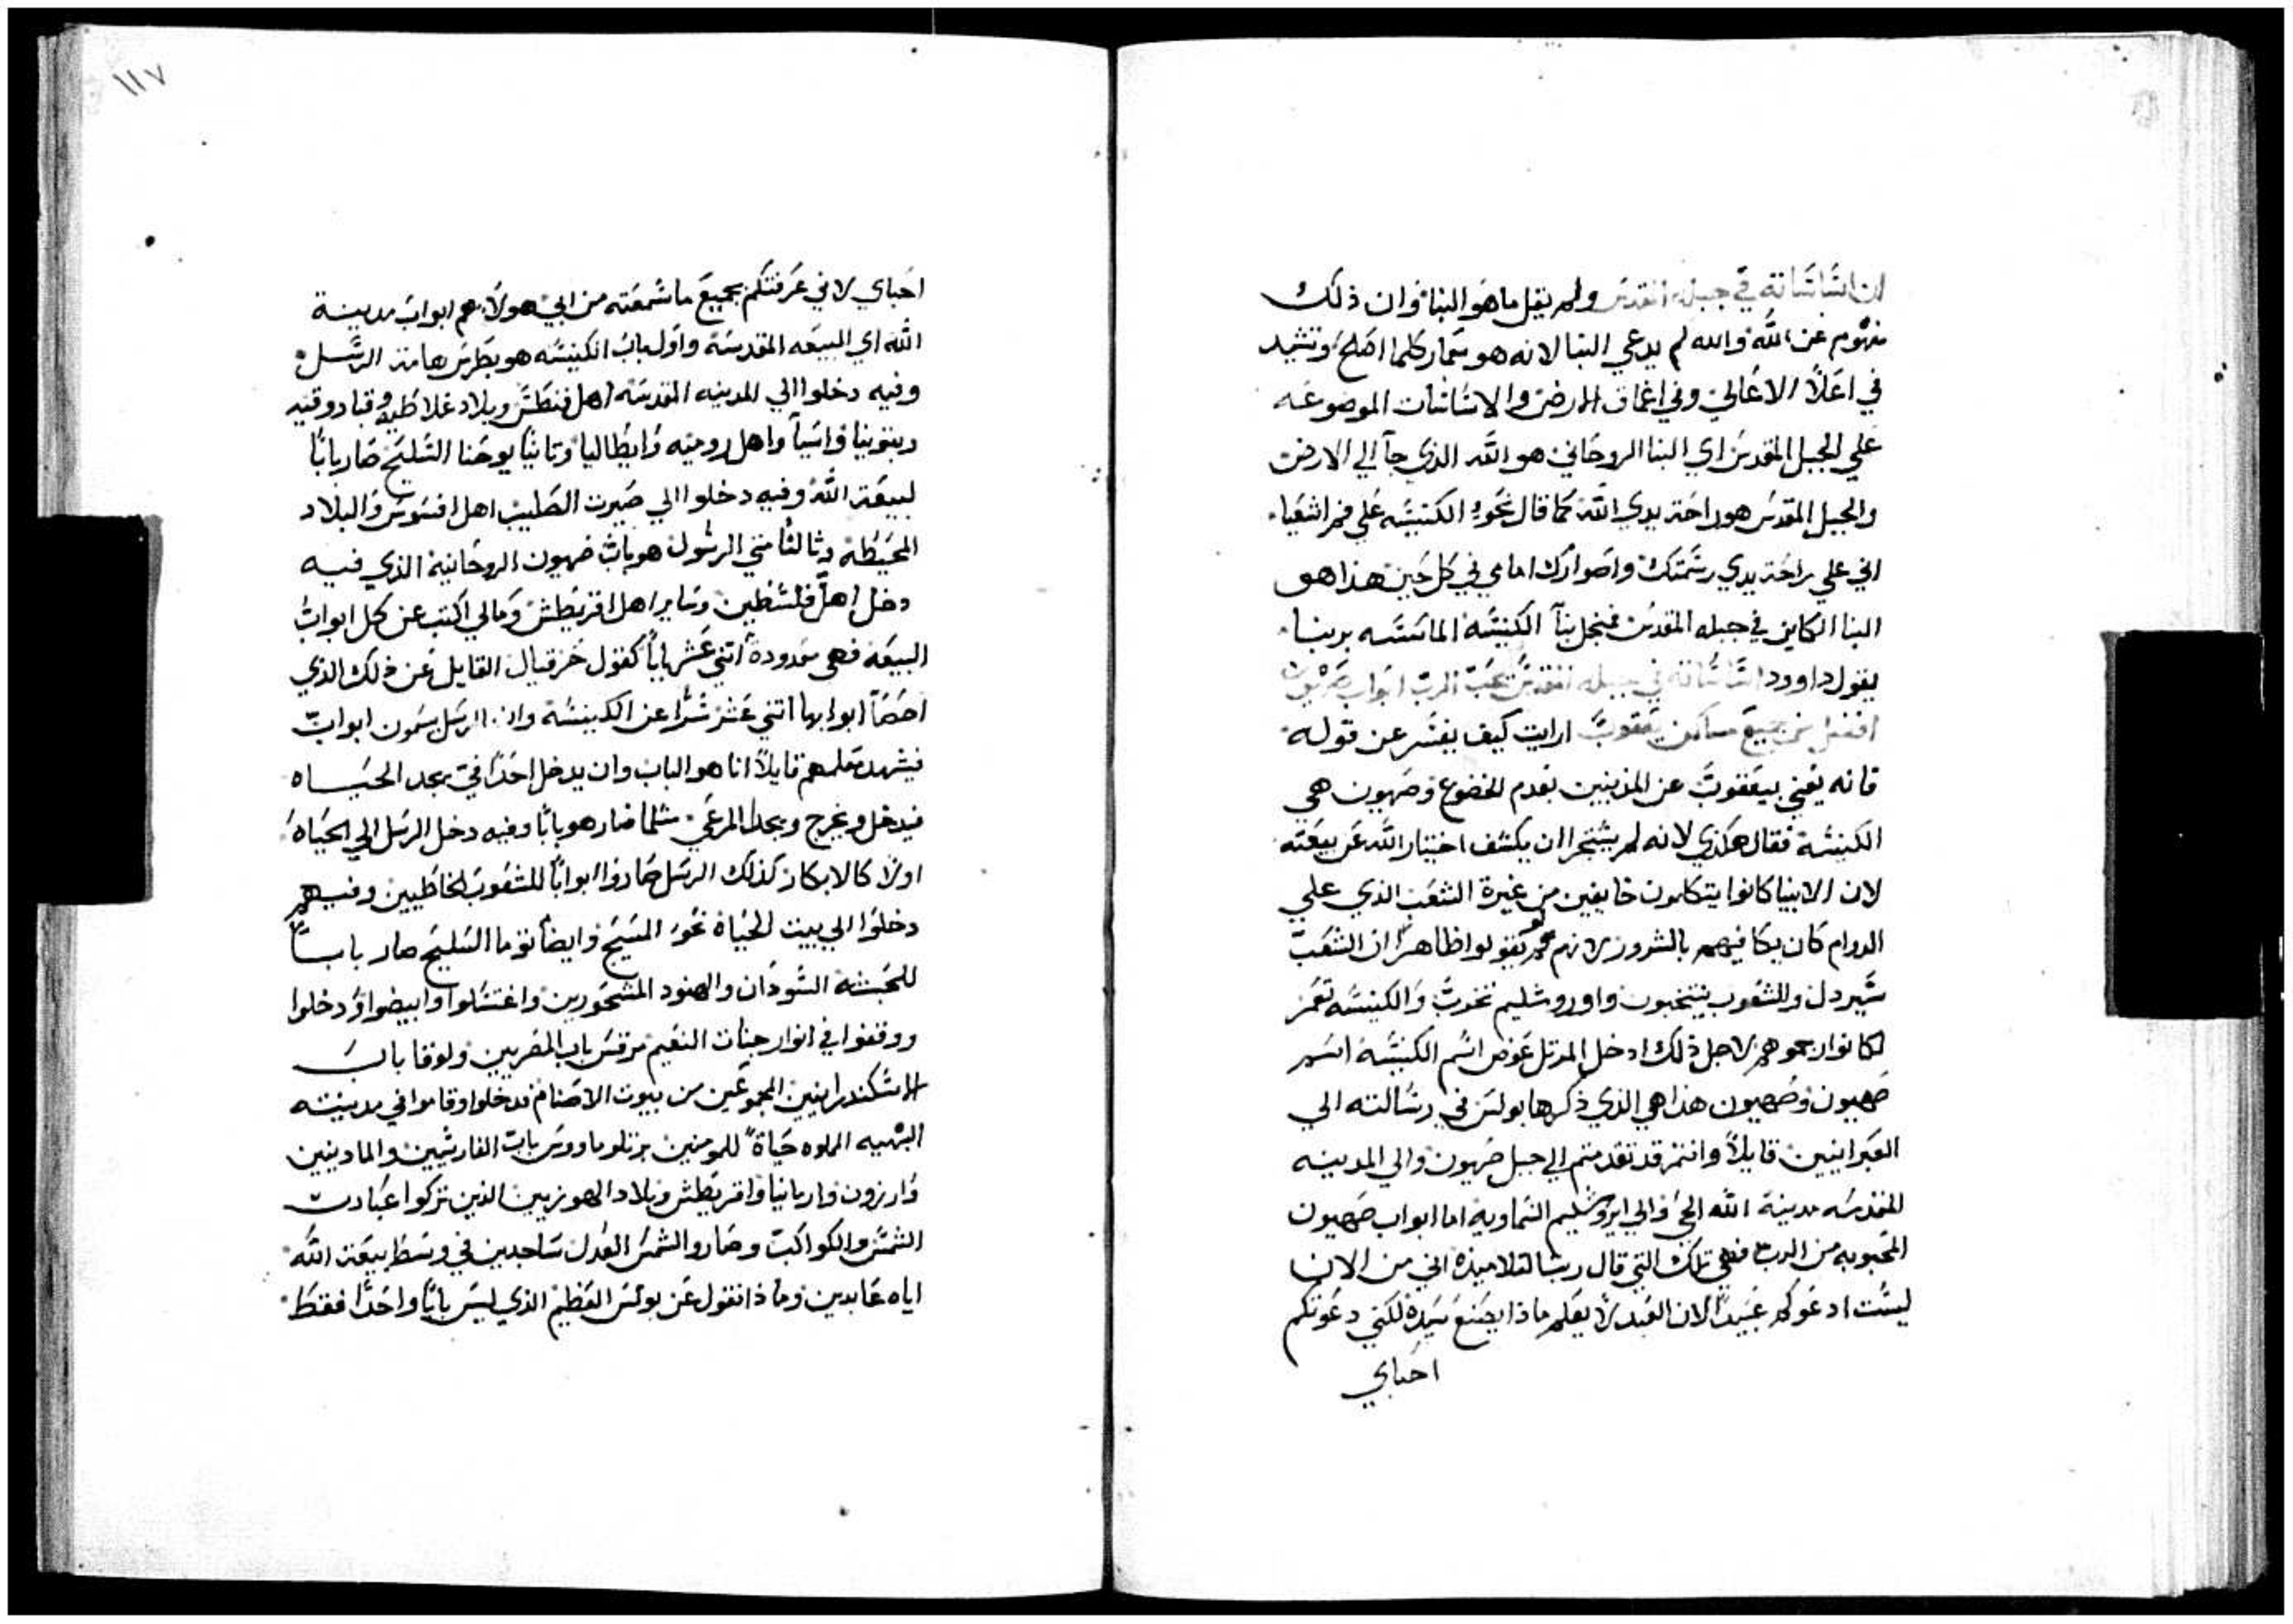 ان اساساته في جبله المقدس ولم يقل ما هو البنا وان ذلك
مفهوم عن الله والله لم يدعي البنا لانه هو سمار كلما اصلح وتشيد
في اعلا الاعالي وفي اعماق الارض والاساسات الموضوعه
علي الجبل المقدس اي البنا الروحاني هو الله الذي جآ الي الارض
والجبل المقدس هو راحة يدي الله كما قال نحو الكنيسه علي فم اشعيا
اني علي راحة يدي رسمتك واصوارك امامي في كل حين هذا هو
البنا الكاين في جبله المقدس فنجل بنآ الكنيسه الماسسه بربنا
يقول داوود اساساته في جبله المقدس يحب الرب ابواب صهيون
افضل من جميع مساكن يعقوب ارايت كيف يفسر عن قوله
فانه يعني بيعقوب عن المذنبين بعدم الخضوع وصهيون هي
الكنيسة فقال هكذي لانه لم يستجرا ان يكشف اختيار الله عن بيعته
لان الانبيا كانوا يتكلمون خايفين من غيرة الشعب الذي علي
الدوام كان يكافيهم بالشرور لانهم لو يقولوا ظاهرا ان الشعب
سيردل وللشعوب ينتخبون واوروشليم تخرب والكنيسه تعمر
لكانوا رجموهم لاجل ذلك ادخل المرتل عوض اسم الكنيسة اسم
صهيون وصهيون هذا هي الذي ذكرها بولس في رسالته الي
العبرانيين قايلا وانتم قد تقدمتم الي جبل صهيون والي المدينه
المقدسه مدينة الله الحي والي ايروشليم السماوية اما ابواب صهيون
المحبوبه من الرب فهي تلك التي قال ربنا لتلاميذه اني من الان
ليست ادعوكم عبيدا لان العبد لا يعلم ماذا يصنع سيده لكني دعوتكم
احباي
١١٧
احباي لاني عرفتكم بجميع ما سمعته من ابي هولاء هم ابواب مدينة
الله اي البيعه المقدسة واول باب الكنيسه هو بطرس هامة الرسل
وفيه دخلوا الي المدينه المقدسه اهل فنطس وبلاد غلاطيه وقبادوقيه
وبتوينيا واسيآ واهل روميه وايطاليا وثانيا يوحنا السليح صار بابا
لبيعة الله وفيه دخلوا الي صيرت الصليب اهل افسوس والبلاد
المحيطة وثالثا متي الرسول هو باب صهيون الروحانية الذي فيه
دخل اهل فلسطين وساير اهل اقريطش ومالي اكتب عن كل ابواب
البيعه فهي معدودة اثني عشر بابا كقول حزقيال القايل عن ذلك الذي
احصآ ابوابها اثني عشر سرا عن الكنيسه وان الرسل يسمون ابواب
فيشهد معلمهم قايلا انا هو الباب وان يدخل احدا في يجد الحياه
فيدخل ويخرج ويجد المرعي مثلما صار هو بابا وفيه دخل الرسل الي الحياه
اولا كالابكار كذلك الرسل صاروا ابوابا للشعوب الخاطيين وفيهم
دخلوا الي بيت الحياة نحو المسيح وايضا توما السليح صار بابا
للحبشه السودان والهنود المشحورين واغتسلوا وابيضوا ودخلوا
ووقفوا في انوار جنات النعيم مرقس باب المصريين ولوقا باب
الاسكندرانيين المجموعين من بيوت الاصنام فدخلوا وقاموا في مدينته
البهيه الملوه حياة للمومنين برتلوماووس باب الفارسيين والمادينين
وارزون واربانيا واقريطش وبلاد الهوزيين الذين تركوا عبادت
الشمس والكواكب وصاروا الشمس العدل ساجدين في وسط بيعة الله
اياه عابدين وماذا نقول عن بولس العظيم الذي ليس بابا واحدا فقط